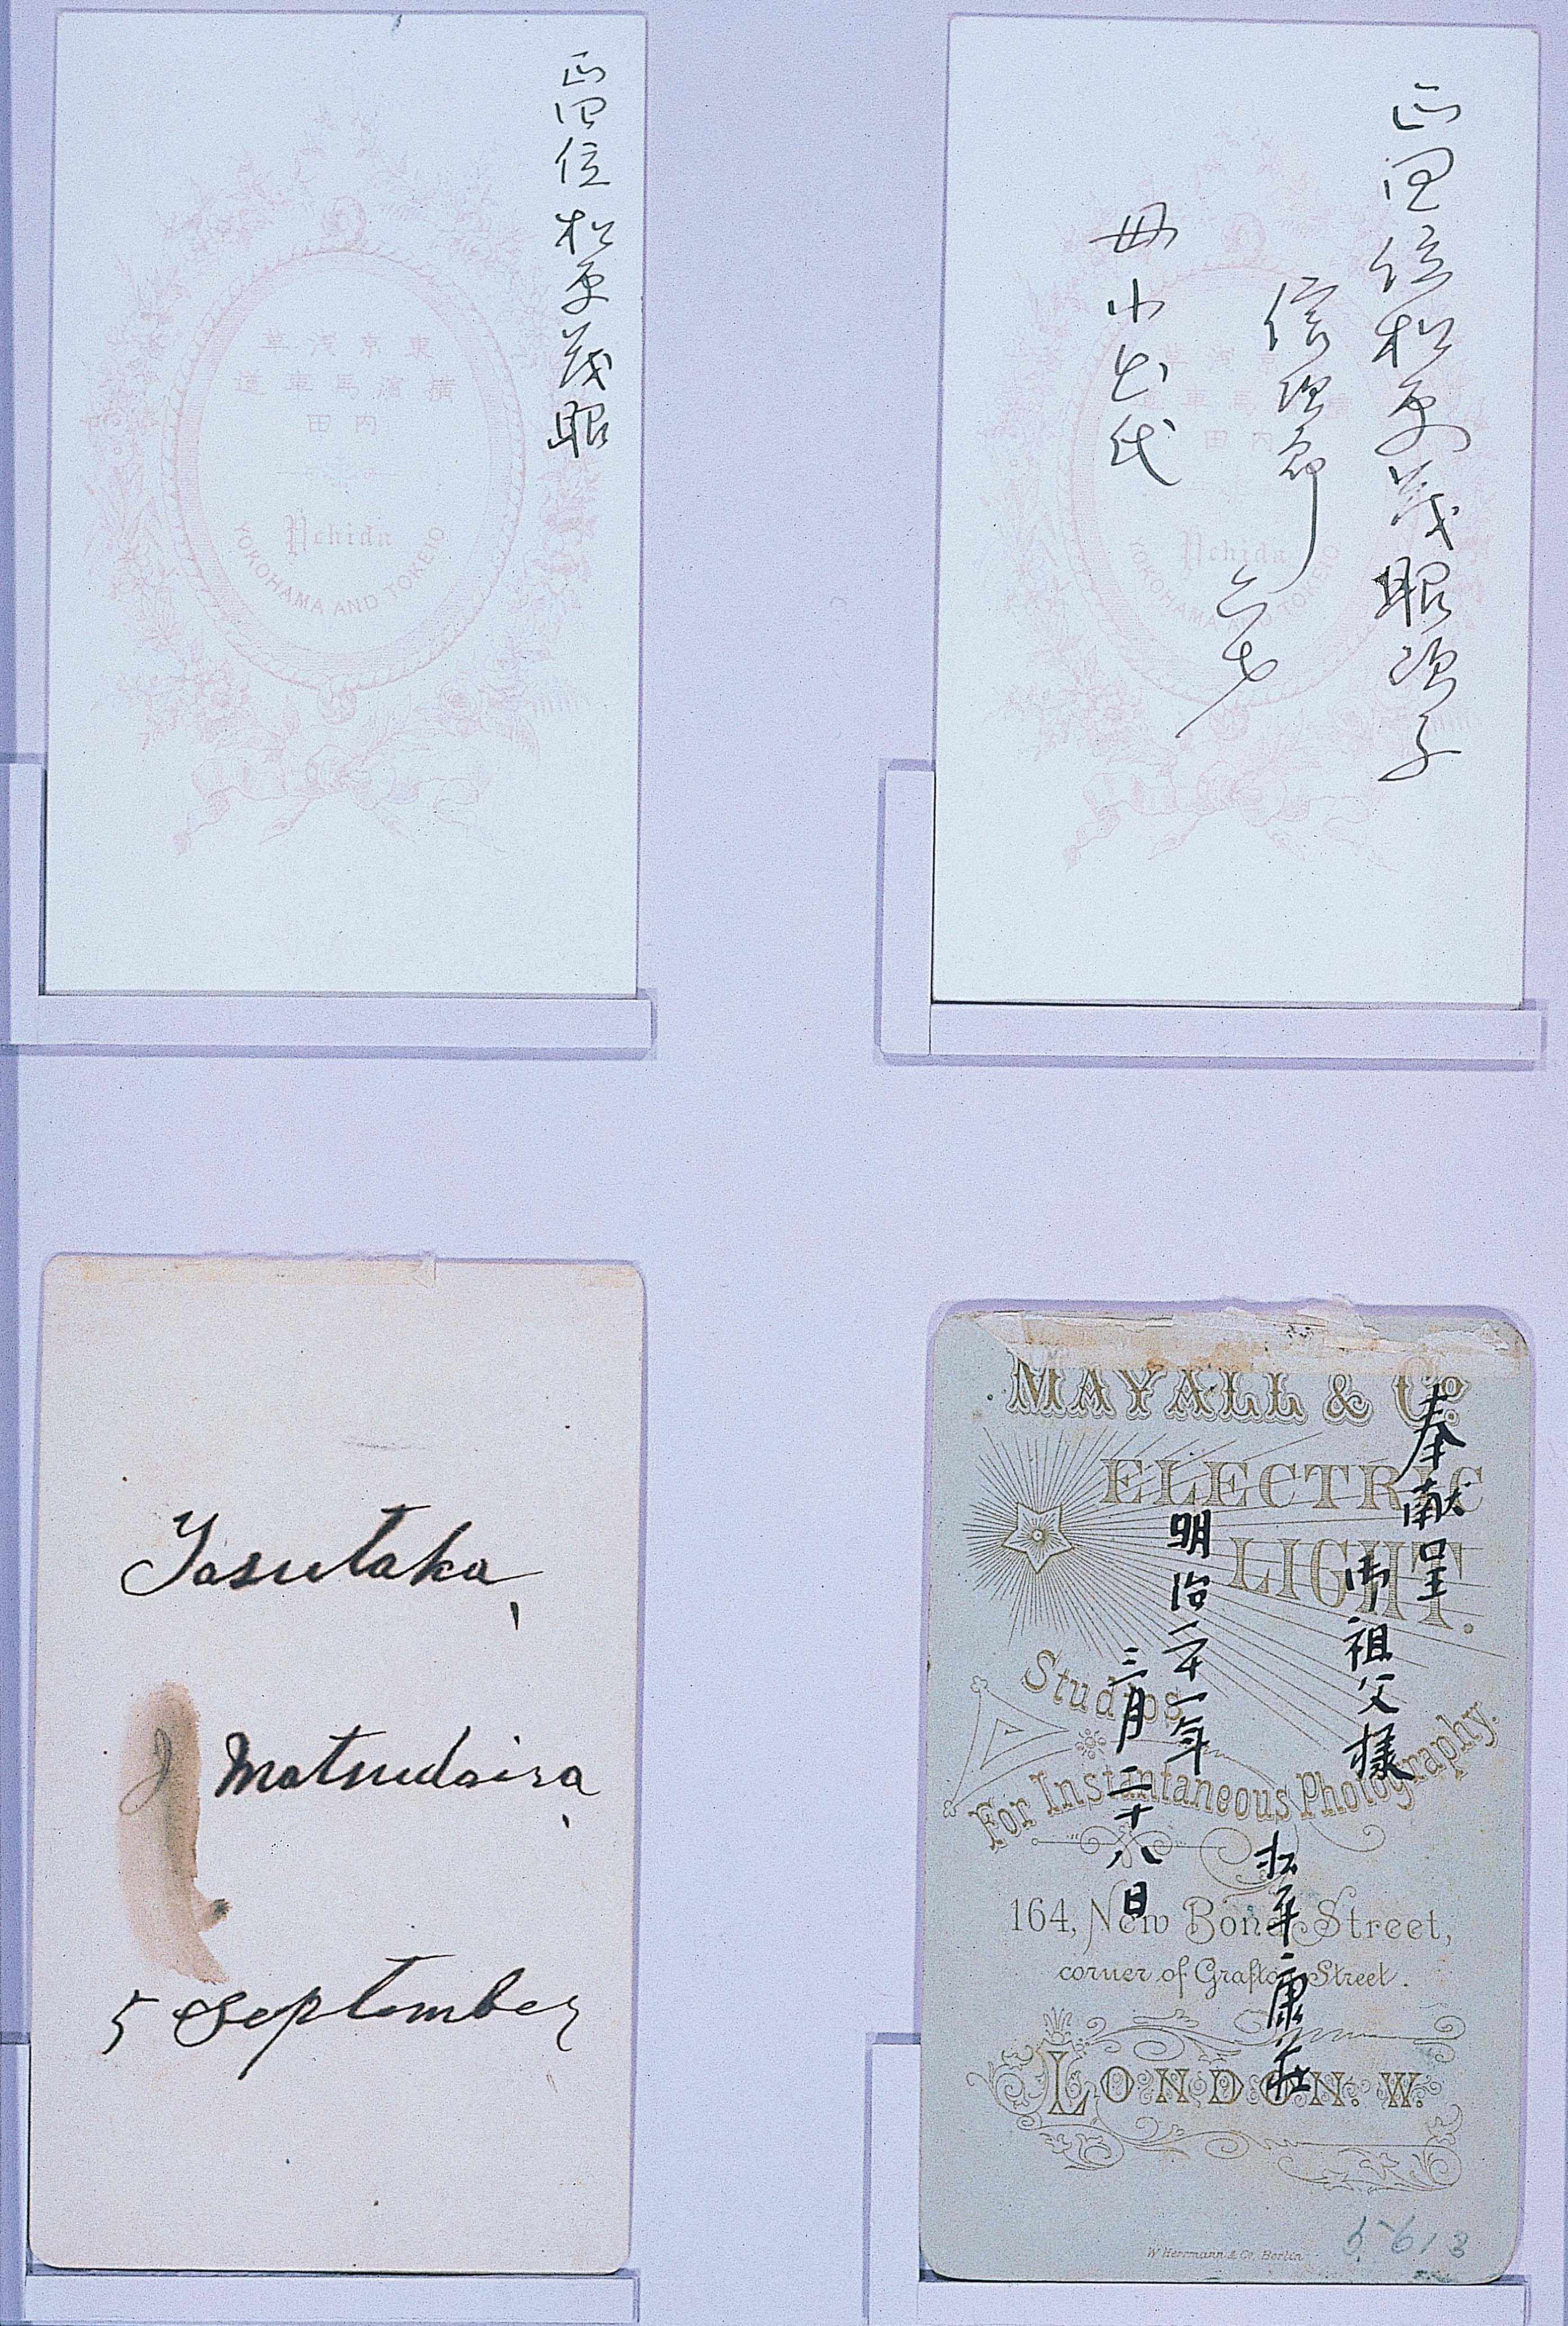 正四位松平茂昭
東京浅草
横濱馬車道
内田
Uchida
YOKOHAMA AND TOKEIO
正四位松平茂昭次子
信次郎
六才
内田
Uchida
YOKOHAMA AND TOKEIO
Yasutaka,
J Matsudaira,
5 September
MAYALL & Co.
ELECTRIC
LIGHT.
Studios
For Instantaneous Photography.
164, New Bond Street,
corner of Grafton Street.
LONDON. W.
W Herrmann & Co, Berlin
奉献呈
御祖父様
松平康荘
明治二十一年
三月二十八日